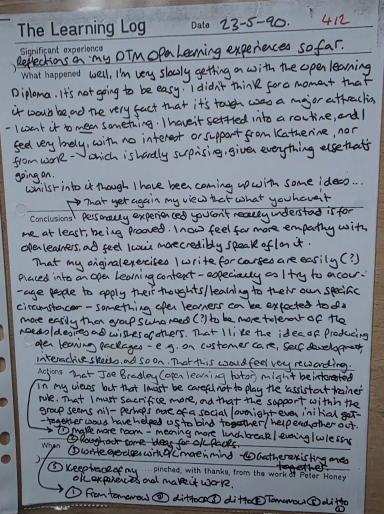 The Learning Log Date 23-5-90. 412
Significant experience
Reflections on my DTM Open Learning experiences so far.
What happened Well, I'm very slowly getting on with the open learning
Diploma. It's not going to be easy. I didn't think for a moment that
it would be, and the very fact that it's tough was a major attraction
- I want it to mean something. I haven't settled into a routine, and I
feel very lonely, with no interest or support from Katherine, nor
from work - which is hardly surprising, given everything else that's
going on.
Whilst into it though I have been coming up with some ideas...
→ That yet again my view that what you haven't
Conclusions personally experienced you can't really understand is for
me at least, being proved. I now feel far more empathy with
open learners, and feel I can more credibly speak of/on it.
That my original exercises I write for courses are easily (?)
placed into an open learning context - especially as I try to encour-
-age people to apply their thoughts/learning to their own specific
circumstances - something open learners can be expected to do
more easily than groups who need (?) to be more tolerant of the
needs/desires and wishes of others. That I like the idea of producing
open learning packages - e.g. on customer care, self development,
interactive skills, and so on. That this would feel very rewarding.
Actions That Joe Bradley (open learning tutor) might be interested
in my views but that I must be careful not to play the assistant trainer
role. That I must sacrifice more, and that the support within the
group seems nil - perhaps more of a social/overnight even initial get-
-together would have helped us to bind together/help each other out.
→ ① Make more room - meaning more lunch break/evening lessons
When ② 
③ Write exercises with O/L more in mind ④ Gather existing ones
together
⑤ Keep track of my ...pinched, with thanks, from the work of Peter Honey
o/L experiences and make it work.
→ ① From tomorrow ② ditto ③ ditto ④ Tomorrow ⑤ ditto